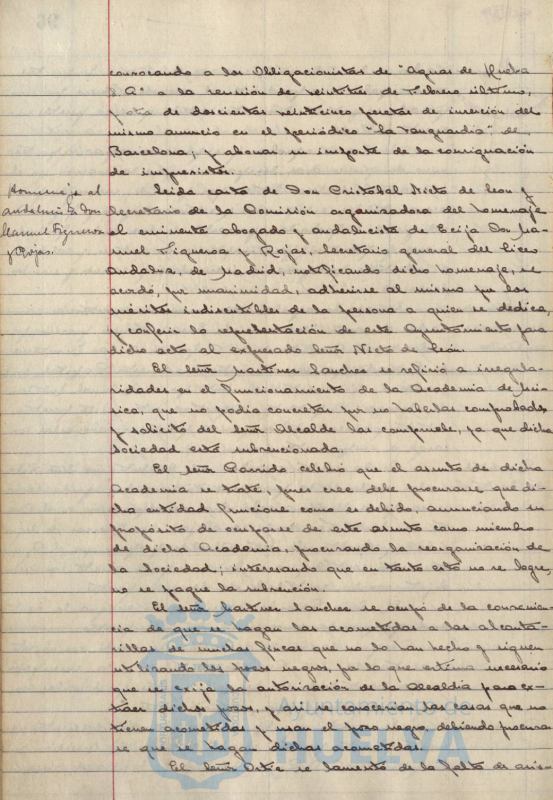 convocando a los Obligacionistas de "Aguas de Huelva
S.A." a la reunión de veintitres de Febrero último,
nota de doscientas veinticinco pesetas de inserción del
mismo anuncio en el periódico "La Vanguardia" de
Barcelona, y abonar su importe de la consignación
de imprevistos.
Homenaje al
andalucista Don
Manuel Figueroa
y Rojas.
Leida carta de Don Cristobal Nieto de Leon y
Secretario de la Comisión organizadora del homenaje
al eminente abogado y andalucista de Ecija Don Ma-
nuel Figueroa y Rojas, Secretario general del Liceo
Andaluz, de Madrid, notificando dicho homenaje, se
acordó, por unanimidad, adherirse al mismo por los
méritos indiscutibles de la persona a quien se dedica,
y conferir la representación de este Ayuntamiento para
dicho acto al expresado Señor Nieto de León.
El Señor Martinez Sanchez se refirió a irregula-
ridades en el funcionamiento de la Academia de Mú-
sica, que no podía concretar por no haberlas comprobado,
y solicitó del Señor Alcalde las compruebe, ya que dicha
Sociedad está subvencionada.
El Señor Garrido celebró que el asunto de dicha
Academia se trate, pues cree debe procurarse que di-
cha entidad funcione como es debido, anunciando su
propósito de ocuparse de este asunto como miembro
de dicha Academia, procurando la reorganización de
la Sociedad; interesando que en tanto esto no se logre,
no se pague la subvención.
El Señor Martinez Sanchez se ocupó de la convenien-
cia de que se hagan las acometidas a las alcanta-
rillas de muchas fincas que no lo han hecho y siguen
utilizando los pozos negros, por lo que estima necesario
que se exija la autorización de la Alcaldía para ex-
traer dichos pozos, y así se conocerian las casas que no
tienen acometidas y usan el pozo negro, debiendo procurar
se que se hagan dichas acometidas.
El Señor Ortiz se lamentó de la falta de asis-
Ayuntamiento de
HUELVA